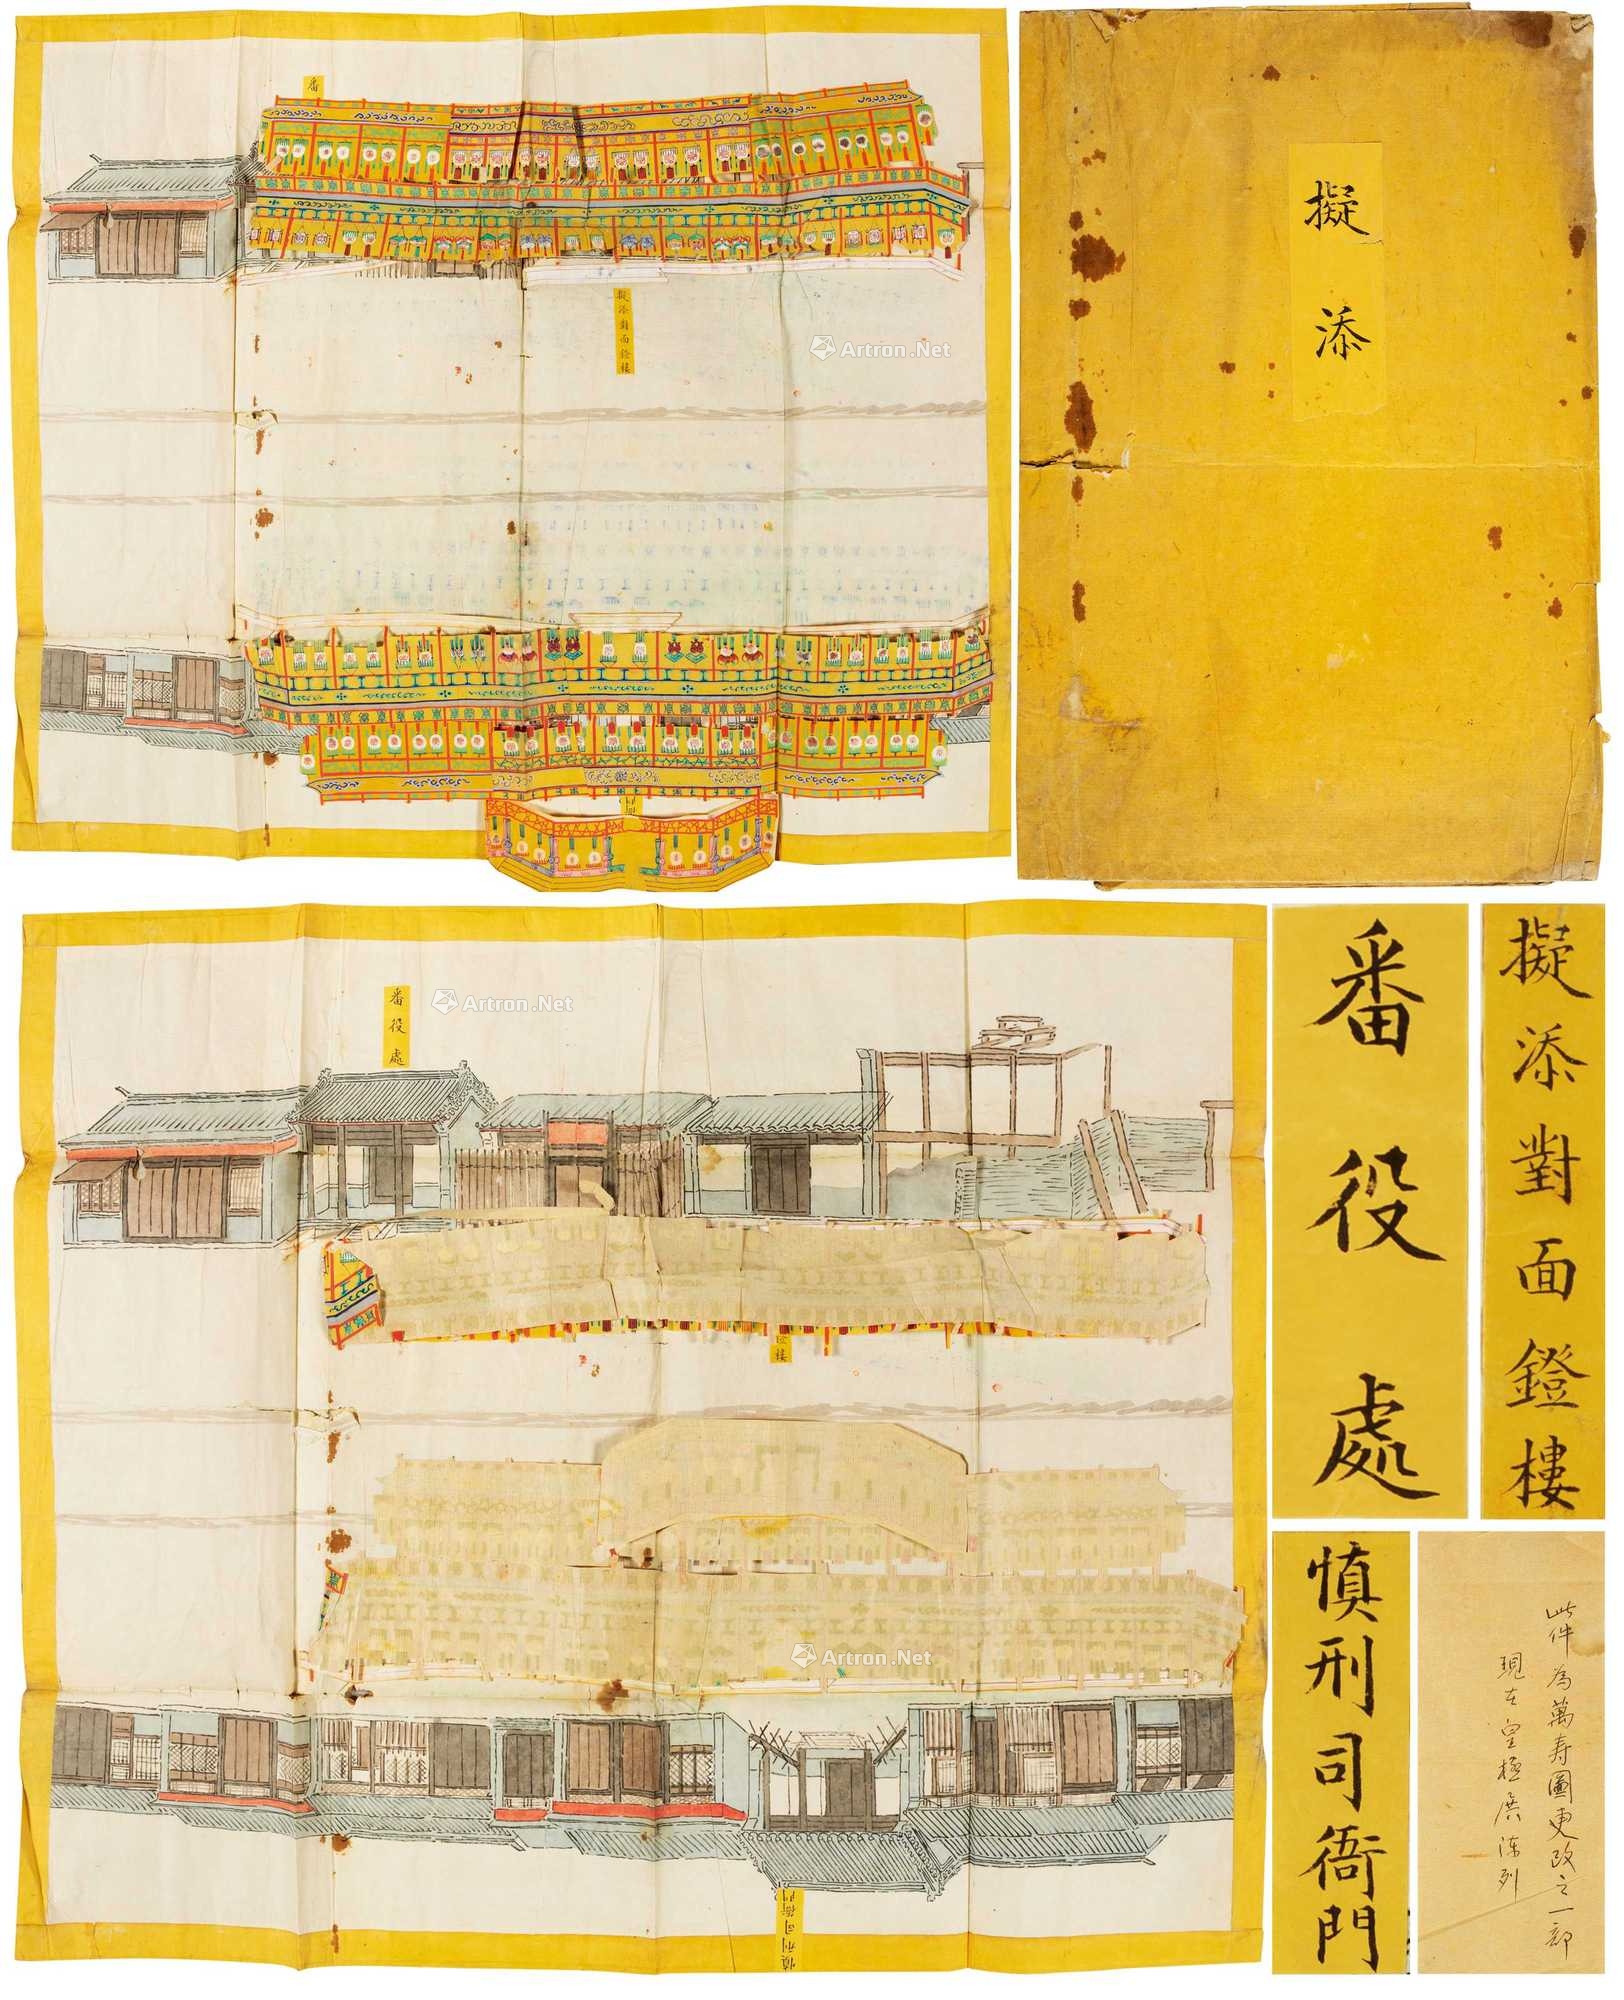 番
擬添對面鐙樓
擬添
Artron.Net
番役處
Artron.Net
樓
慎刑司衙門
Artron.Net
番役處
擬添對面鐙樓
慎刑司衙門
此件為萬寿圖更改之一部
現在皇極殿陳列